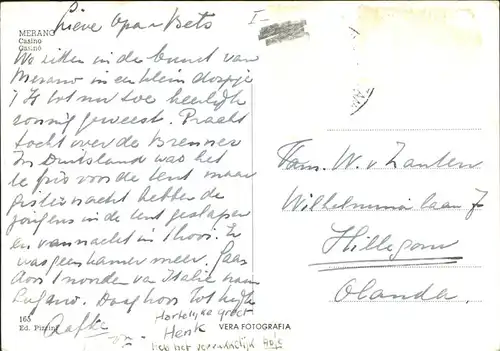 Lieve Opa + Bets
MERANO
Casino
Casino
We zitten in de buurt van
Merano in een klein dorpje
't Is tot nu toe heerlijk
zonnig geweest. Pracht
tocht over de Brenner
In Duitsland was het
te fris voor de tent maar
gisternacht hebben de
jongens in de tent geslapen
en vannacht in 1 hooi. Er
was geen kamer meer. Gaan
door 't noorden van Italie naar
Lugano. Dag hoor tot kijk
Aafke
Hartelijke groet
Henk
Heb het verrukkelijk
165
Ed.
VERA FOTOGRAFIA
I
Fam. W. v Zanten
Wilhelmina laan
Hillegom
Olanda.